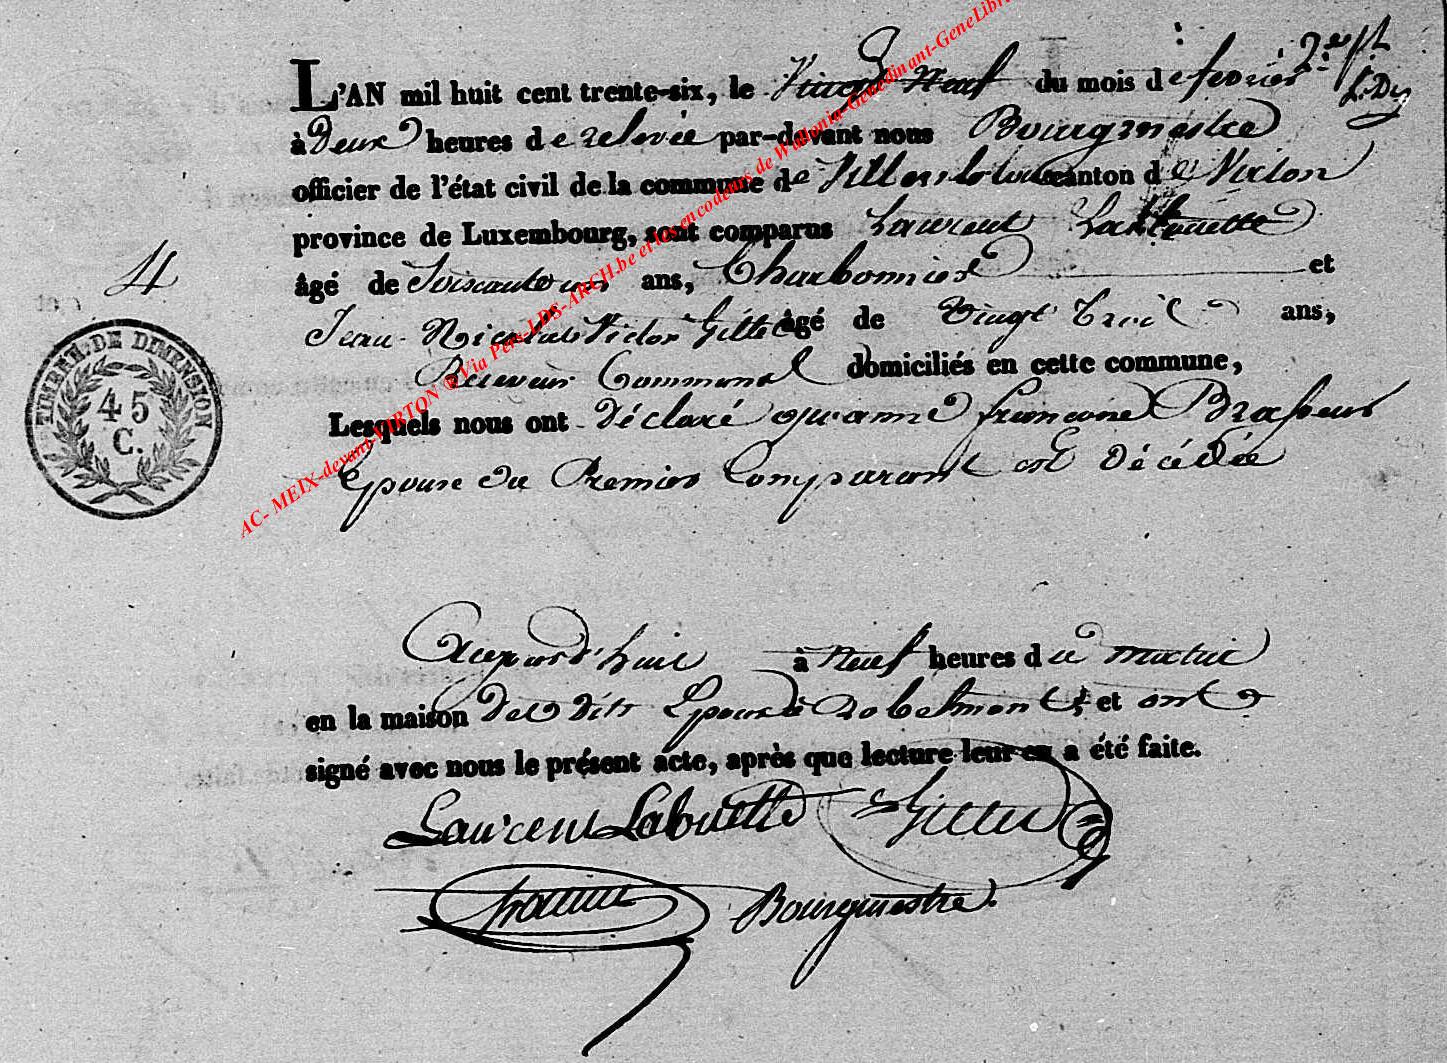 L'AN mil huit cent trente-six, le Vingt Neuf du mois de fevrier
à Deux heures de relevée par-devant nous Bourgmestre
officier de l'état civil de la commune de Villers la loue canton de Virton
province de Luxembourg, sont comparus Laurent Labbouette
âgé de Soixante ans, Charbonnier et
Jean Nicolas Victor Gillet âgé de Vingt Trois ans,
Receveur Communal domiciliés en cette commune,
Lesquels nous ont Déclaré qu'anne françoise Brasseur
Epouse du Premier Comparant est Décédée
4
TIMBRE DE DIMENSION
45
C.
Aujourd'huit à Neuf heures du matin
en la maison Des Dits Epoux à Robelmont et ont
signé avec nous le présent acte, après que lecture leur en a été faite.
Laurent Labouette Gillet
Bourgmestre.
AC- MEIX-devant-VIRTON Via Pers-LDS-ARCH.be et les encodeurs de Wallonia-Genedinant-GeneLibr